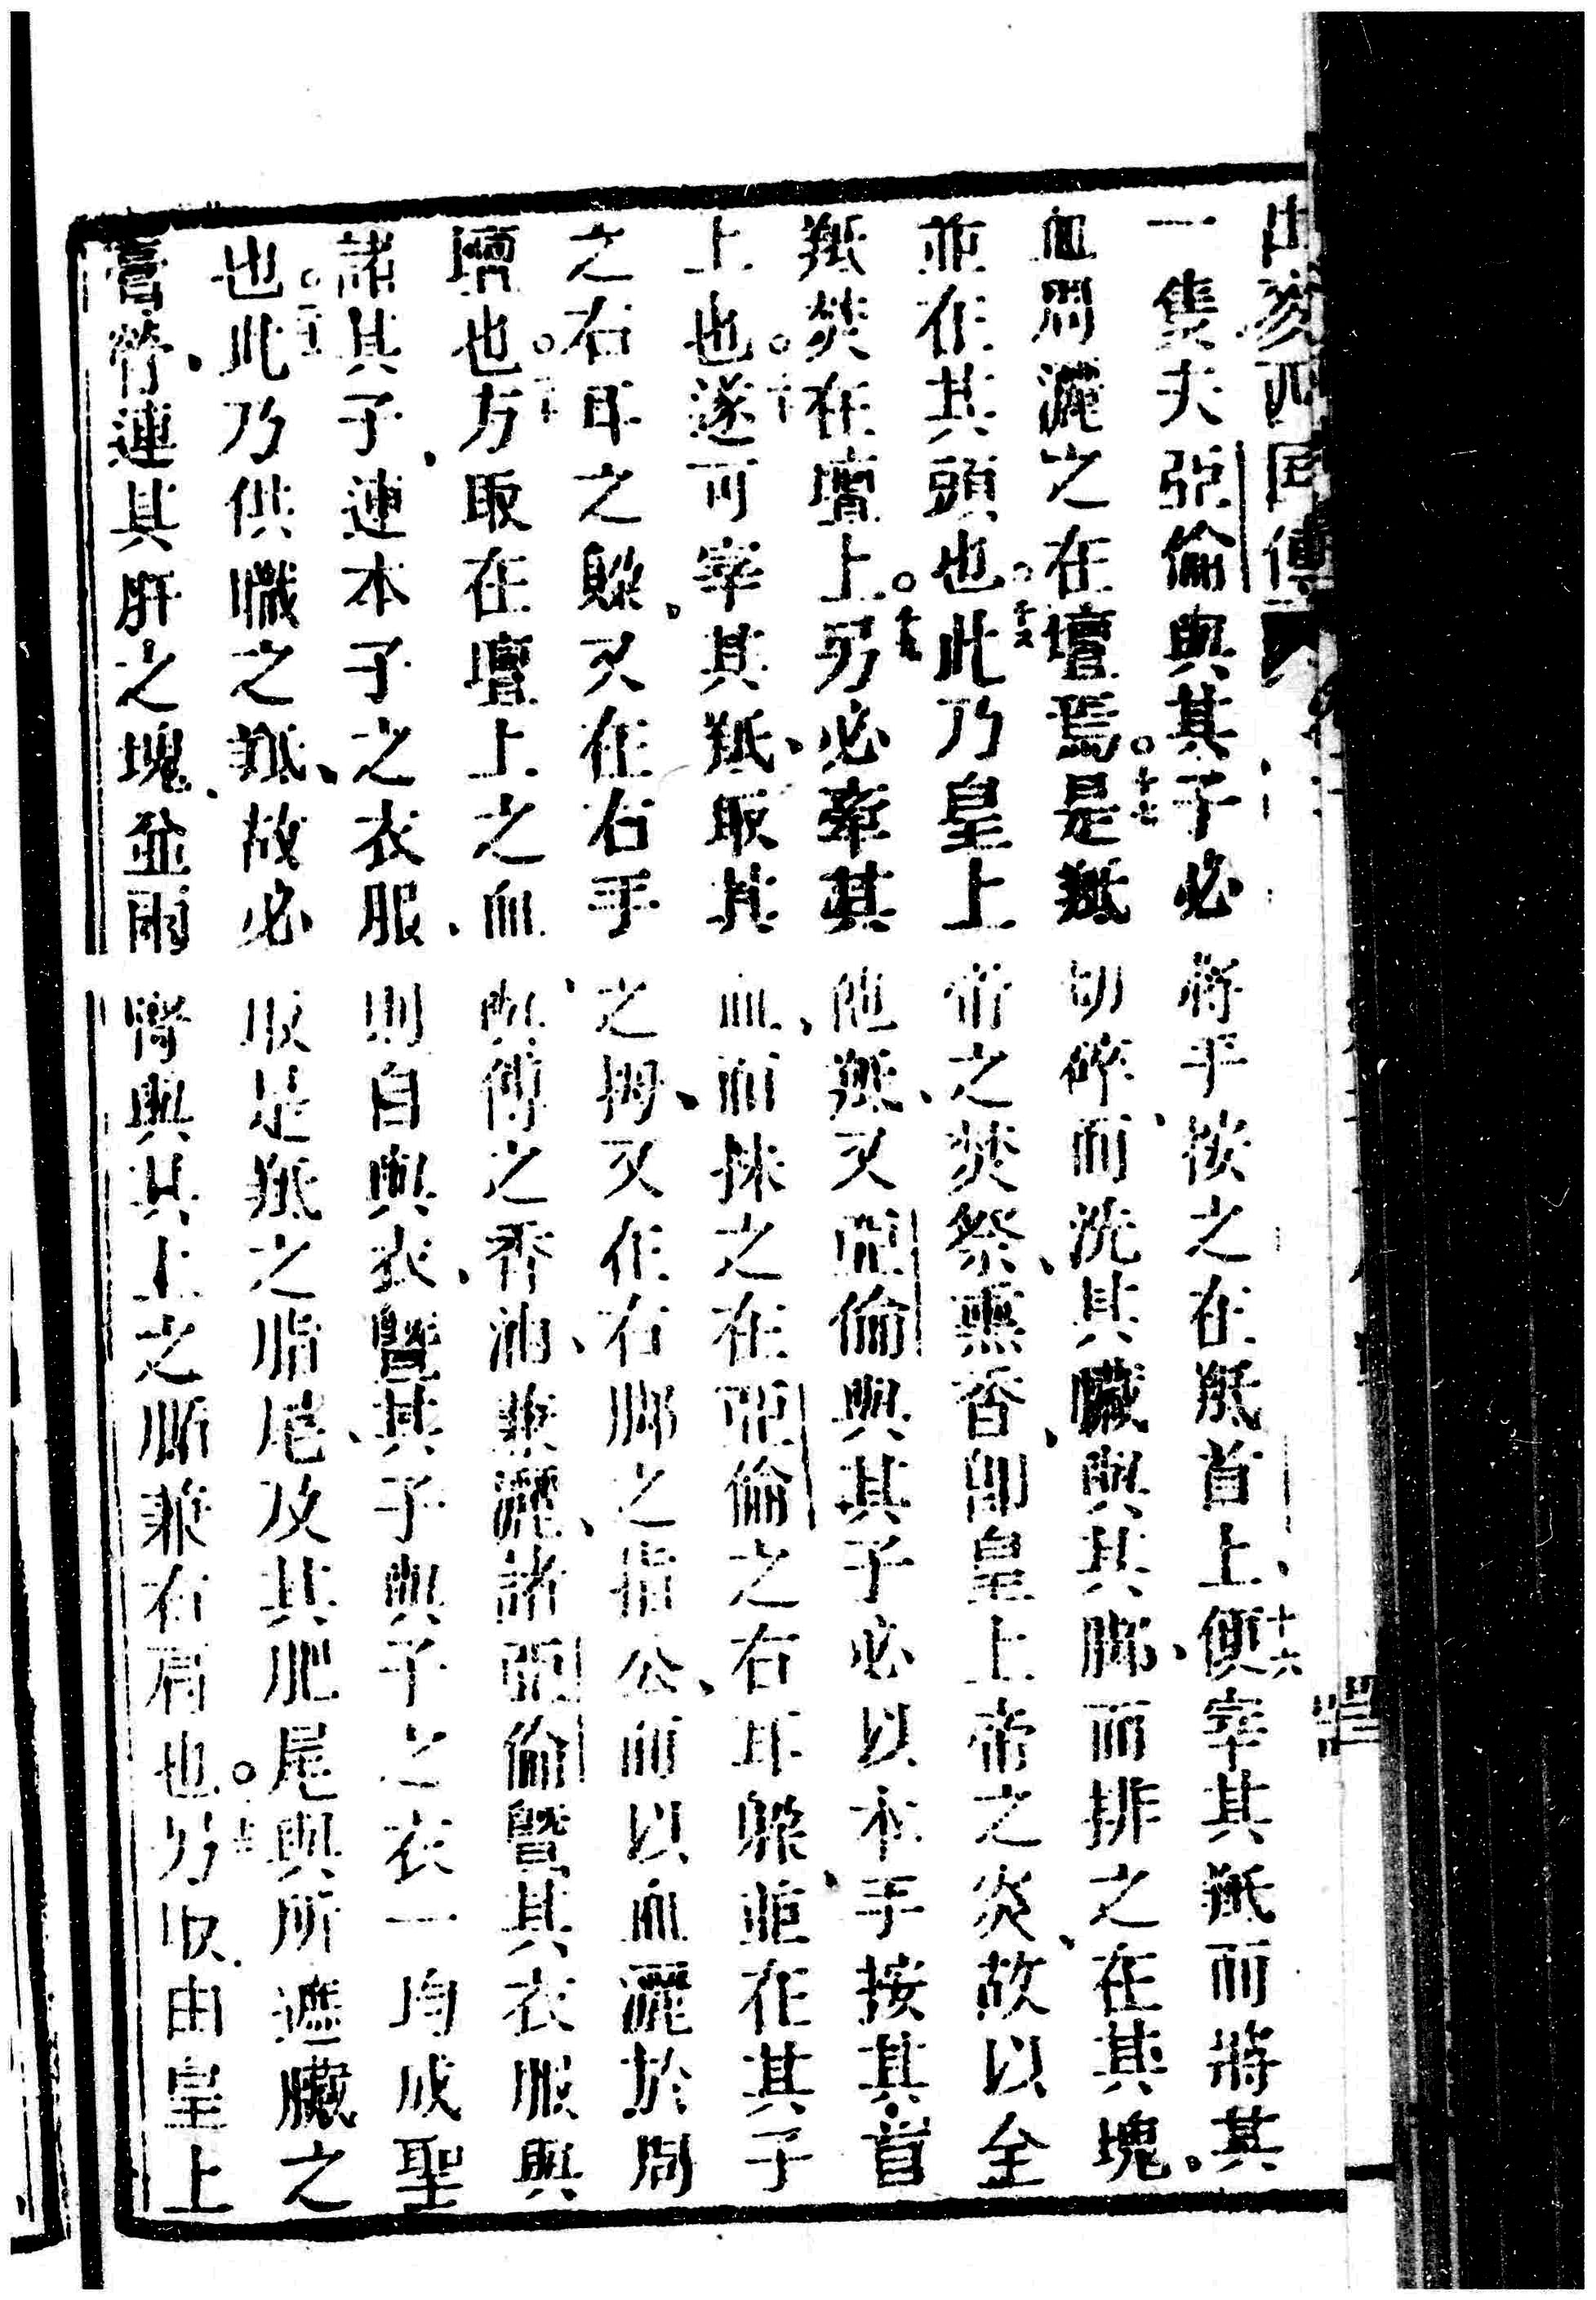 出麥西國傳
一隻夫亞倫與其子必將手按之在羝首上、十六便宰其羝而將其
血周灑之在壇焉。十七是羝切碎、而洗其臟與其脚、而排之在其塊、
並在其頭也。十八此乃皇上帝之焚祭、熏香、卽皇上帝之炎、故以全
羝焚在壇上。十九另必牽其他羝、又亞倫與其子必以本手按其首
上也。二十遂可宰其羝、取其血、而抹之在亞倫之右耳躲、並在其子
之右耳之躲、又在右手之拇、又在右脚之指公、而以血灑於周
壇也。二十一方取在壇上之血、與傅之香油、兼灑、諸亞倫曁其衣服與
諸其子、連本子之衣服、則自與衣、曁其子與子之衣一均成聖
也。二十二此乃供職之羝、故必取是羝之脂尾、及其肥尾與所遮臟之
膏、膋連其肝之塊、並兩腎與其上之脂兼右肩也。二十三另取由皇上